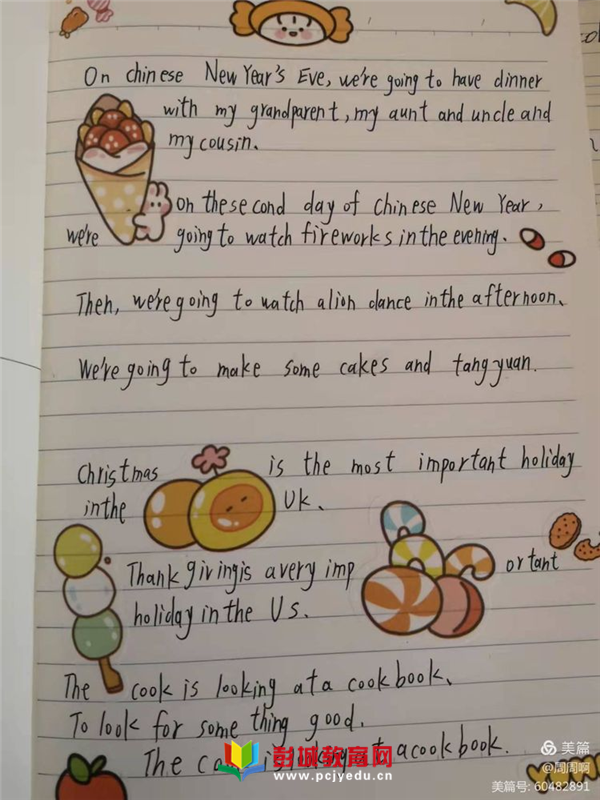 On chinese New Year's Eve, we're going to have dinner
with my grandparent, my aunt and uncle and
my cousin.
on the second day of chinese New Year,
we're going to watch fireworks in the evening.
Then, we're going to watch a lion dance in the afternoon.
We're going to make some cakes and tangyuan.
Christmas is the most important holiday
in the Uk.
Thank giving is a very important
holiday in the Us.
The cook is looking at a cook book.
To look for some thing good.
The a cook book.
彭城教育网
www.pcjyedu.cn
美篇
@周周啊
美篇号: 60482891